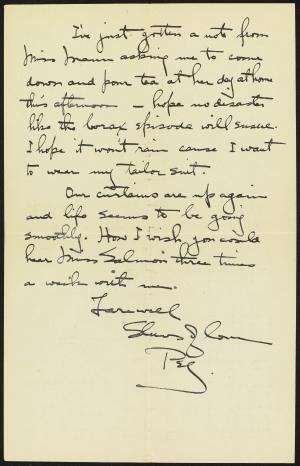 I've just gotten a note from
Miss Mann asking me to come
down and pour tea at her day at home
this afternoon — hope no disaster
like the borax episode will ensue.
I hope it won't rain cause I want
to wear my tailor suit.
Our curtains are up again
and life seems to be going
smoothly. How I wish you could
hear Miss Salmon three times
a week with me.
Farewell
Slews of love
Peg.